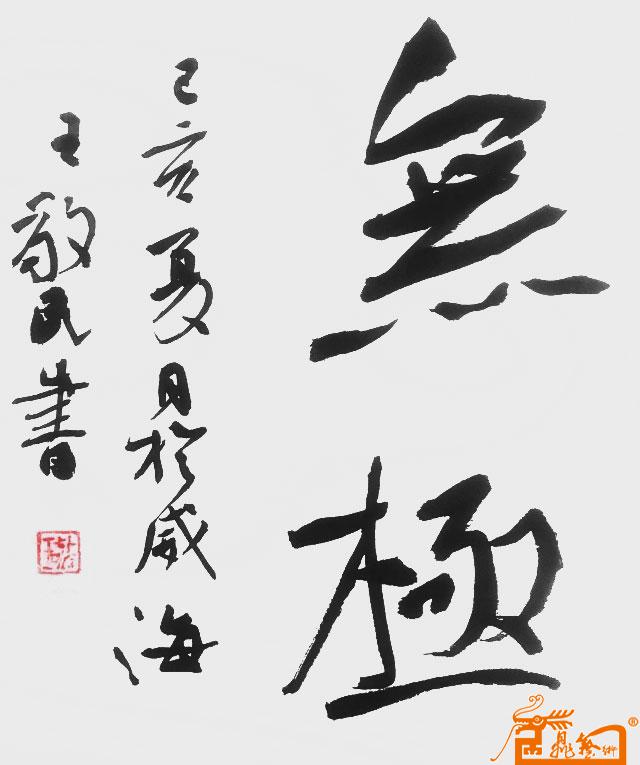 無極
己亥夏日於威海
王敬民書